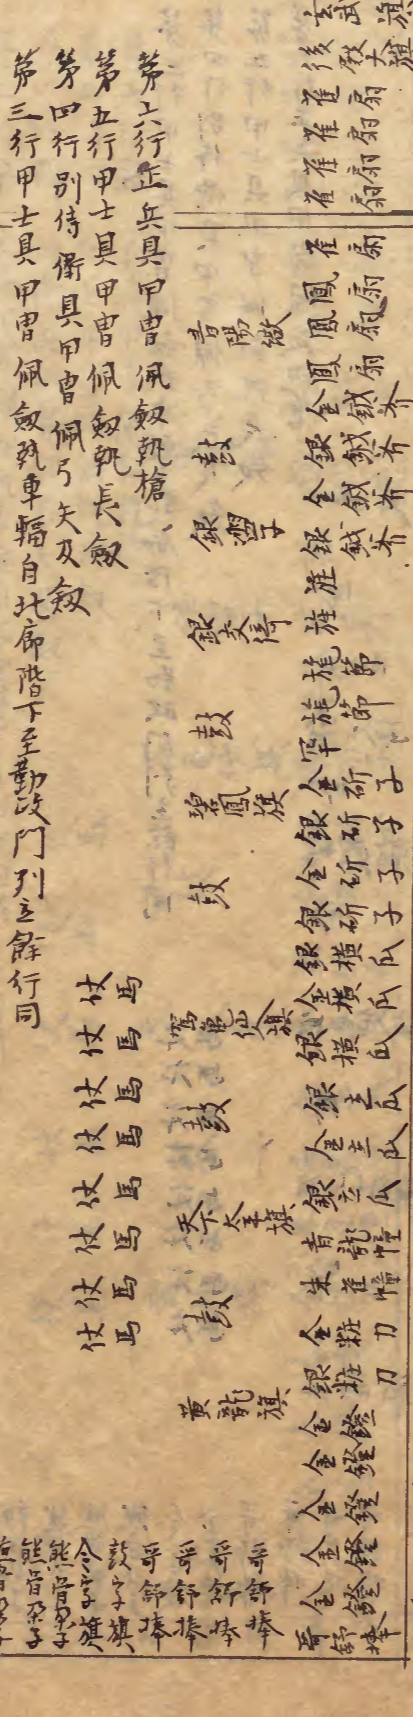 玄武旗
後殿大旗
雀扇
雀扇
雀扇
雀扇
雀扇
鳳扇
鳳扇
鳳扇
金鉞斧
銀鉞斧
金鉞斧
銀鉞斧
旌
旌
旄節
旄節
罕
金斫子
銀斫子
金斫子
銀斫子
銀橫瓜
金橫瓜
銀橫瓜
銀立瓜
金立瓜
銀立瓜
青龍幢
朱雀幢
金粧刀
銀粧刀
金鐙
金鐙
金鐙
金鐙
金鐙
哥舒捧
青陽繖
鼓
銀盥子
銀交倚
鼓
碧鳳旗
鼓
駕龜仙人旗
鼓
天下太平旗
鼓
黃龍旗
哥舒捧
哥舒捧
哥舒捧
哥舒捧
鼓字旗
令字旗
熊骨朶子
熊骨朶子
第六行正兵具甲冑佩劒執槍
第五行甲士具甲冑佩劒執長劒
第四行別侍衛具甲冑佩弓矢及劒
第三行甲士具甲冑佩劒執車輻自北廊階下至勤政門列立餘行同
仗馬
仗馬
仗馬
仗馬
仗馬
仗馬
仗馬
仗馬